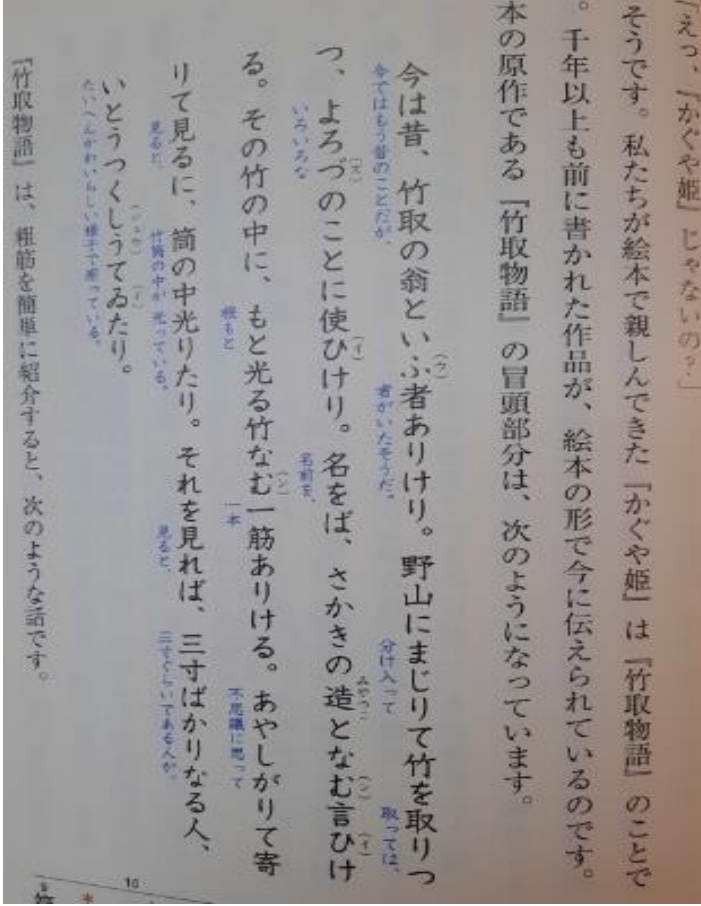 「えっ、『かぐや姫』じゃないの？」
そうです。私たちが絵本で親しんできた『かぐや姫』は『竹取物語』のことで
。千年以上も前に書かれた作品が、絵本の形で今に伝えられているのです。
本の原作である『竹取物語』の冒頭部分は、次のようになっています。
今は昔、竹取の翁といふ者ありけり。野山にまじりて竹を取りつ
(ウ)
今ではもう昔のことだが、 者がいたそうだ。 分け入って 取っては、
つ、よろづのことに使ひけり。名をば、さかきの造となむ言ひけ
(ズ) (イ) みやつこ (ン) (イ)
いろいろな 名前を、
る。その竹の中に、もと光る竹なむ一筋ありける。あやしがりて寄
(ン)
根もと 一本 不思議に思って
りて見るに、筒の中光りたり。それを見れば、三寸ばかりなる人、
見ると、 竹筒の中が光っている。 見ると、 三寸ぐらいである人が、
いとうつくしうてゐたり。
(シュウ) (イ)
たいへんかわいらしい様子で座っている。
『竹取物語』は、粗筋を簡単に紹介すると、次のような話です。
16